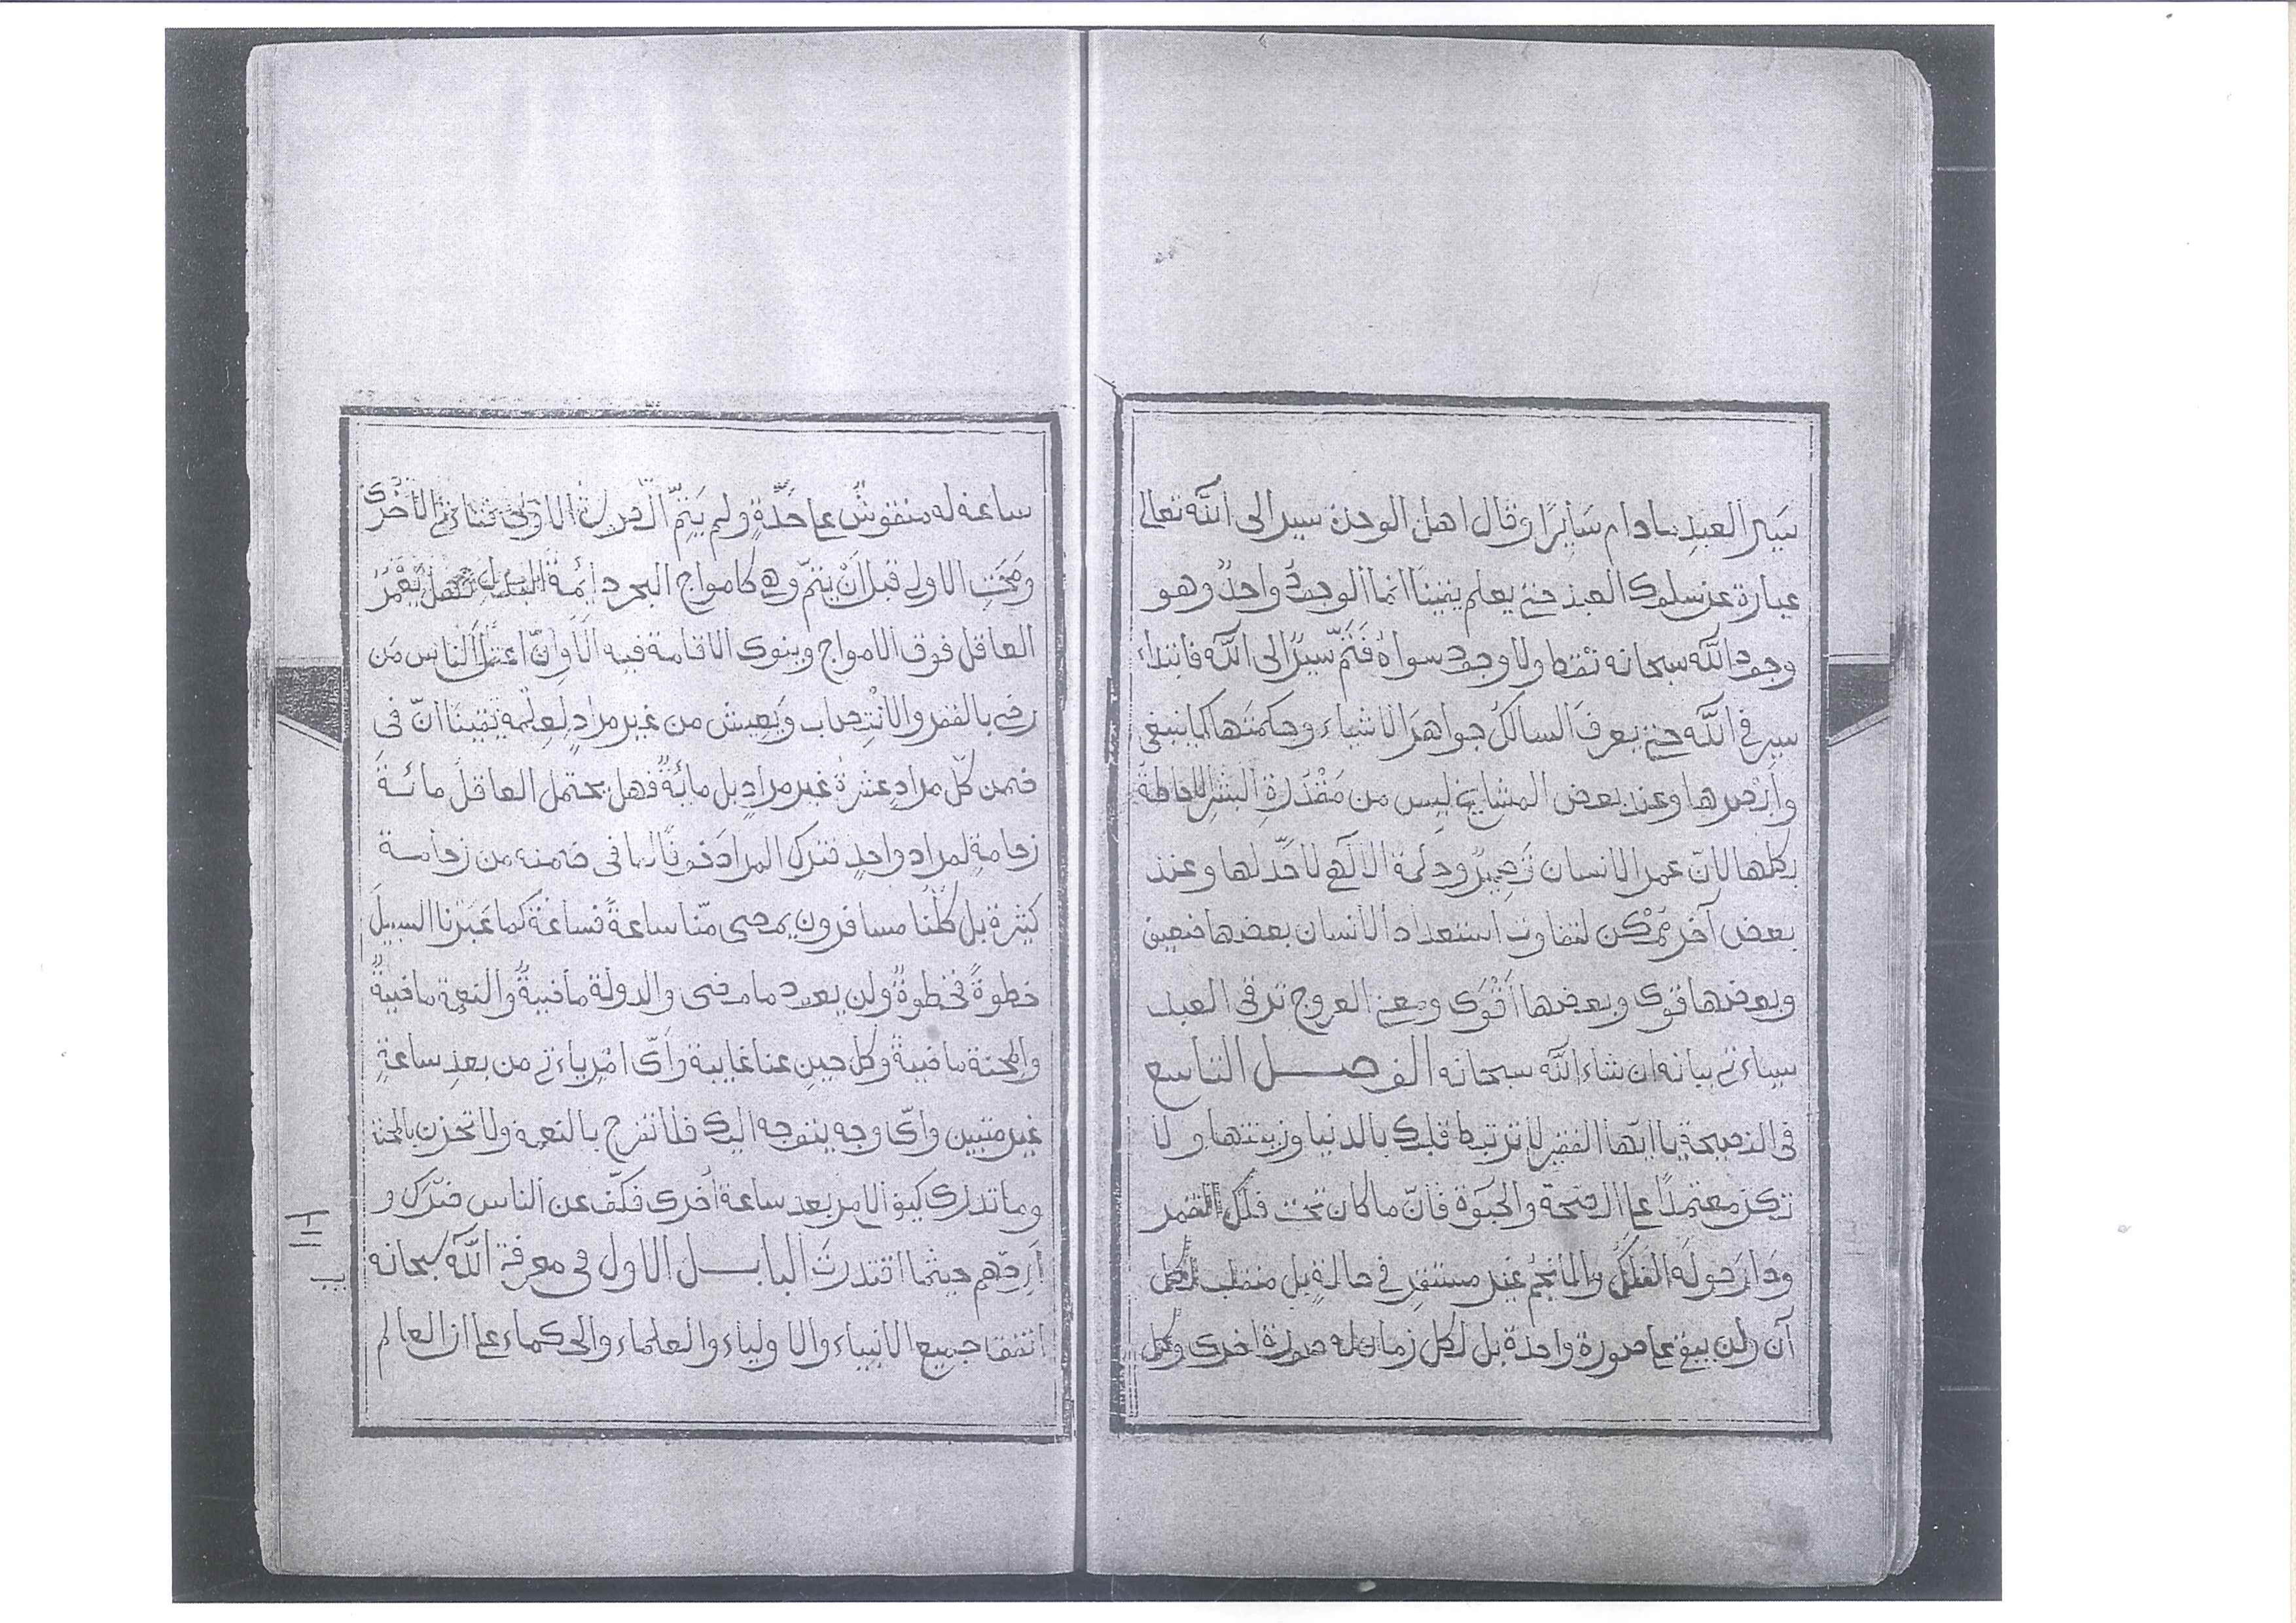 سَير العبدِ مادام سَايِرًا وقال اهل الوحدة سير الى الله تعالى
عبارة عن سلوك العبد حتى يعلم يقينًا انما الوجودُ واحدٌ وهو
وجود الله سبحانه فقط ولا وجود سواهُ فَتَمَّ سَيرٌ الى الله فابتداء
سير في الله حتى يعرفَ السالكُ جواهرَ الاشياء وحكمتَها كما ينبغي
وابصرها وعند بعض المشايخ ليس من مَقْدَرةِ البشرِ الاحاطة
بكلها لان عمر الانسان قصيرٌ وحكمة الاله لا حَدَّ لها وعند
بعض آخر مُمْكن لتفاوت استعداد الانسان بعضها ضعيف
وبعضها قوى وبعضها أَقْوَى ومعنى العروج ترقى العبد
سياتى بيانه ان شاء الله سبحانه الفصل التاسع
فى النصيحة يا ايها الفقير لا تربط قلبك بالدنيا وزينتها ولا
تكن معتمدًا على الصحة والحيوة فانّ ما كان تحت فلك القمر
ودَارَ حولَه الفلكُ والانجمُ غير مستقرٍ في حالةٍ بل منقلب لكل
آن ولن يبقى على صورة واحدة بل لكل زمان له صورة اخرى وكل
ساعة له منقوش على حِدَةٍ ولم يَتِمّ الاولى تتأتى الأخرى
ومُحِيَت الاولى قبل أَنْ يتمّ وهى كامواج البحر دائمة فهل يُعَمِّرُ
العاقل فوق الامواج وينوى الاقامة فيه الا وانّ اعقلَ الناس مَن
رضى بالفقر و ويَعِيش من غير مرادٍ لعِلمه يقينًا انّ فى
ضمن كلّ مرادٍ عشرةُ غير مرادٍ بل مائةٌ فهل يحتمل العاقلُ مائةَ
زحامةٍ لمراد واحدٍ فترك المرادَ خوفًا لما فى ضمنه من زحامة
كثيرة بل كلّنا مسافرون يمضى منّا ساعةً فساعةً كما عَبَرْنا السبيلَ
خطوةً فخطوةً ولن يعود ما مضى والدولة مافيةٌ والنعمة مافيةٌ
والمحنة مافيةٌ وكل حينٍ عنا غايبة وأىّ امْرٍ يأتى من بعدِ ساعةٍ
غير متبين وأىّ وجه يتوجه اليك فلا تفرح بالنعمة ولا تحزن بالمحنة
وما تدرى كيف الامر بعد ساعة أخرى فكّف عن الناس ضرّك و
ارحهم حيثما اقتدرتَ الباب الاول فى معرفة الله سبحانه
اتفق جميع الانبياء والاولياء والعلماء والحكماء على ان العالم